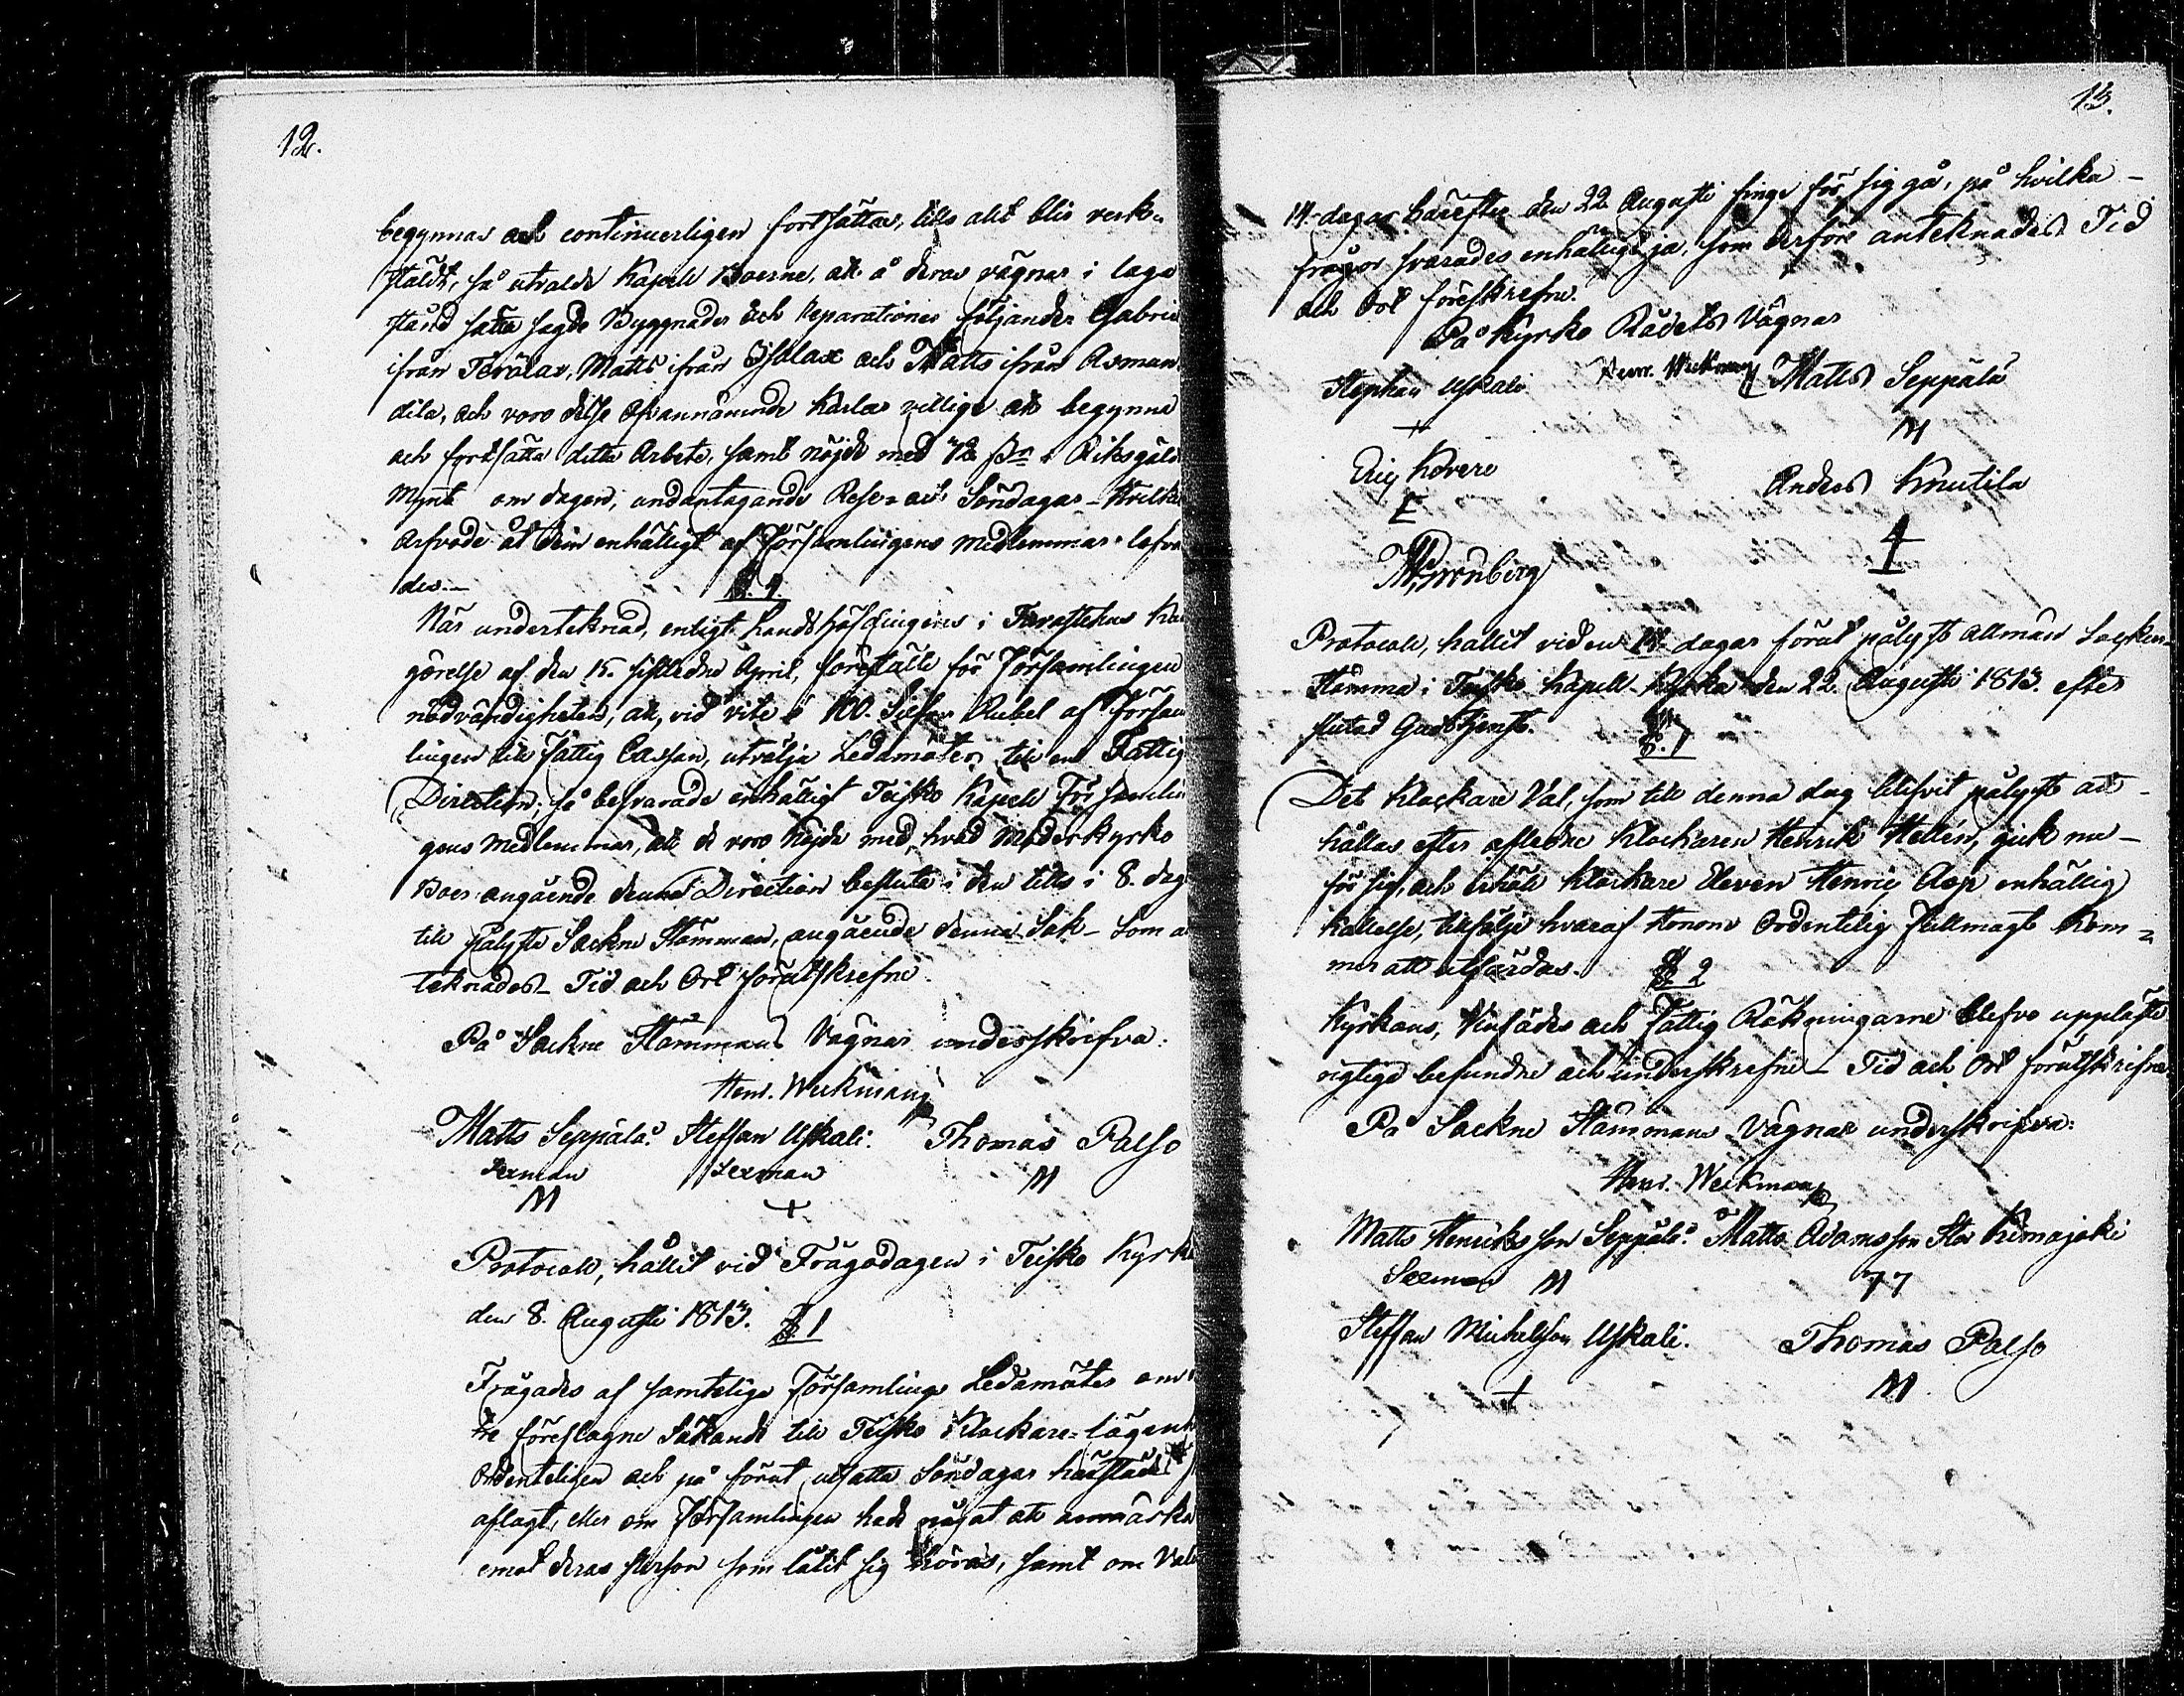 12.
begynnas och continuerligen fortsättas, tills allt blir verk-
stäldt, så utvalde Kapell Boerne, att å deras vägnar i laga
stånd sätta sagde Byggnader och Reparationer följander Gabrie
ifrån Terälax, Matts ifrån Isolax och Matts ifrån Asmun
dila, och voro desse ofvannämnde Karlar villige att begynna
och fortsätta detta Arbete, samt nöjde med 72 Riksgälds
Mynt om dagen, undantagande Rese- och Söndagar - Hvilket
Arfvode åt dem enhälligt af Församlingens medlemmar lofva
des. -
§ 4
När underteknad, enligt Landshöfdingens i Tavastehus Kun
görelse af den 15. sistledne April, förestälte för Församlingen
nödvändigheten, att, vid vite å 100. Silfver Rubel af Försam
lingen till Fattig Cassan, utvälja Ledamöter till en Fattig
Direction; så besvarade enhälligt Teisko Kapell Försam̄lin
gens Medlemmar, att de voro nöjda med, hvad Moderkyrko
Boer angående denna Direction besluta i den till i 8. dag
till pålyste Sockne Stämman, angående denna Sak - Som an
teknades - Tid och Ort förutskrefne
På Sockne Stämmans Vägnar underskrifva:
Henr. Weckman
Matts Seppälä. Steffan Uskali. Thomas Palso
Sexman Sexman M
M +
Protocoll, hållit vid Frågodagen i Teisko Kyrka
den 8. Augusti 1813. § 1
Frågades af samtelige Församlings Ledamöter om
tre föreslagne Sökande till Teisko Klockare-lägenh
Ordenteligen och på förut utsatta Söndagar härstädes
aflagt, eller om Församlingen hade något att anmärka
emot deras person som låtit sig höras, samt om Vale
13.
14-dagar härefter den 22 Augusti finge för sig gå, på hvilka -
frågor svarades enhälligt ja, som derföre anteknades Tid
och Ort föreskrefne.
På Kyrko Rådets Vägnar
Henr. Weckman
Stephan Uskali Matts Seppälä
+ M
Eric Kovero Anders Knutila
E 4
M Grönberg
Protocoll, hållit vid en 14-dagar förut pålyst allmän Socken-
Stämma i Teisko Kapell-Kyrka den 22. Augusti 1813. efter
slutad Gudstjenst.
§. 1
Det Klockare Val, som till denna dag blifvit pålyst att -
hållas efter afledne Klockaren Henrik Hellén, gick nu -
för sig, och erhöll Klockare Eleven Henric Asp enhällig
Kallelse, tillfölje hvaraf Honom Ordentelig Fullmagt Kom-
mer att utfärdas. § 2
Kyrkans, Vinsädes och Fattig Räkningarne blefvo uppläste
rigtige befundne och underskrefne - Tid och Ort förutskrifne
På Sockne Stämmans Vägnar underskrifva:
Henr. Weckman
Matts Henricsson Seppälä. Matts Adamsson Stor Komajoki
Sexman M 77
Steffan Michelsson Uskali. Thomas Palso
+ M